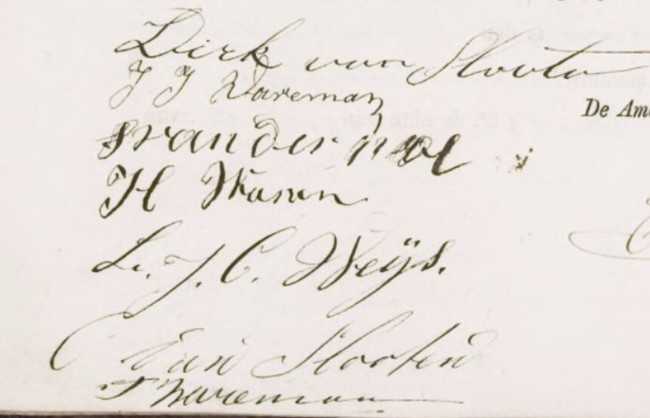 Dirk van Slooten
J J Wareman
De Am
H Waren
L. J. C. Weijs.
van Slooten
Wareman